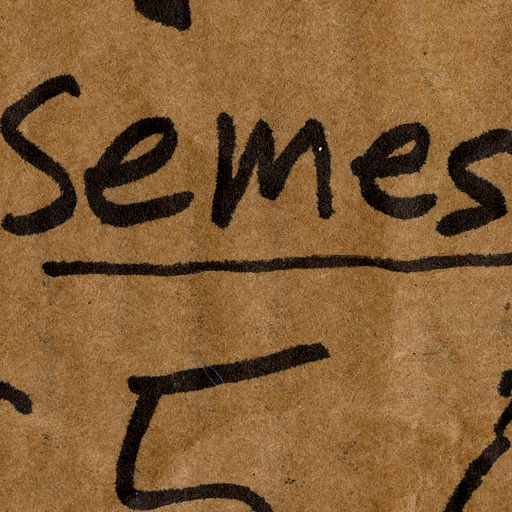 Semes
5